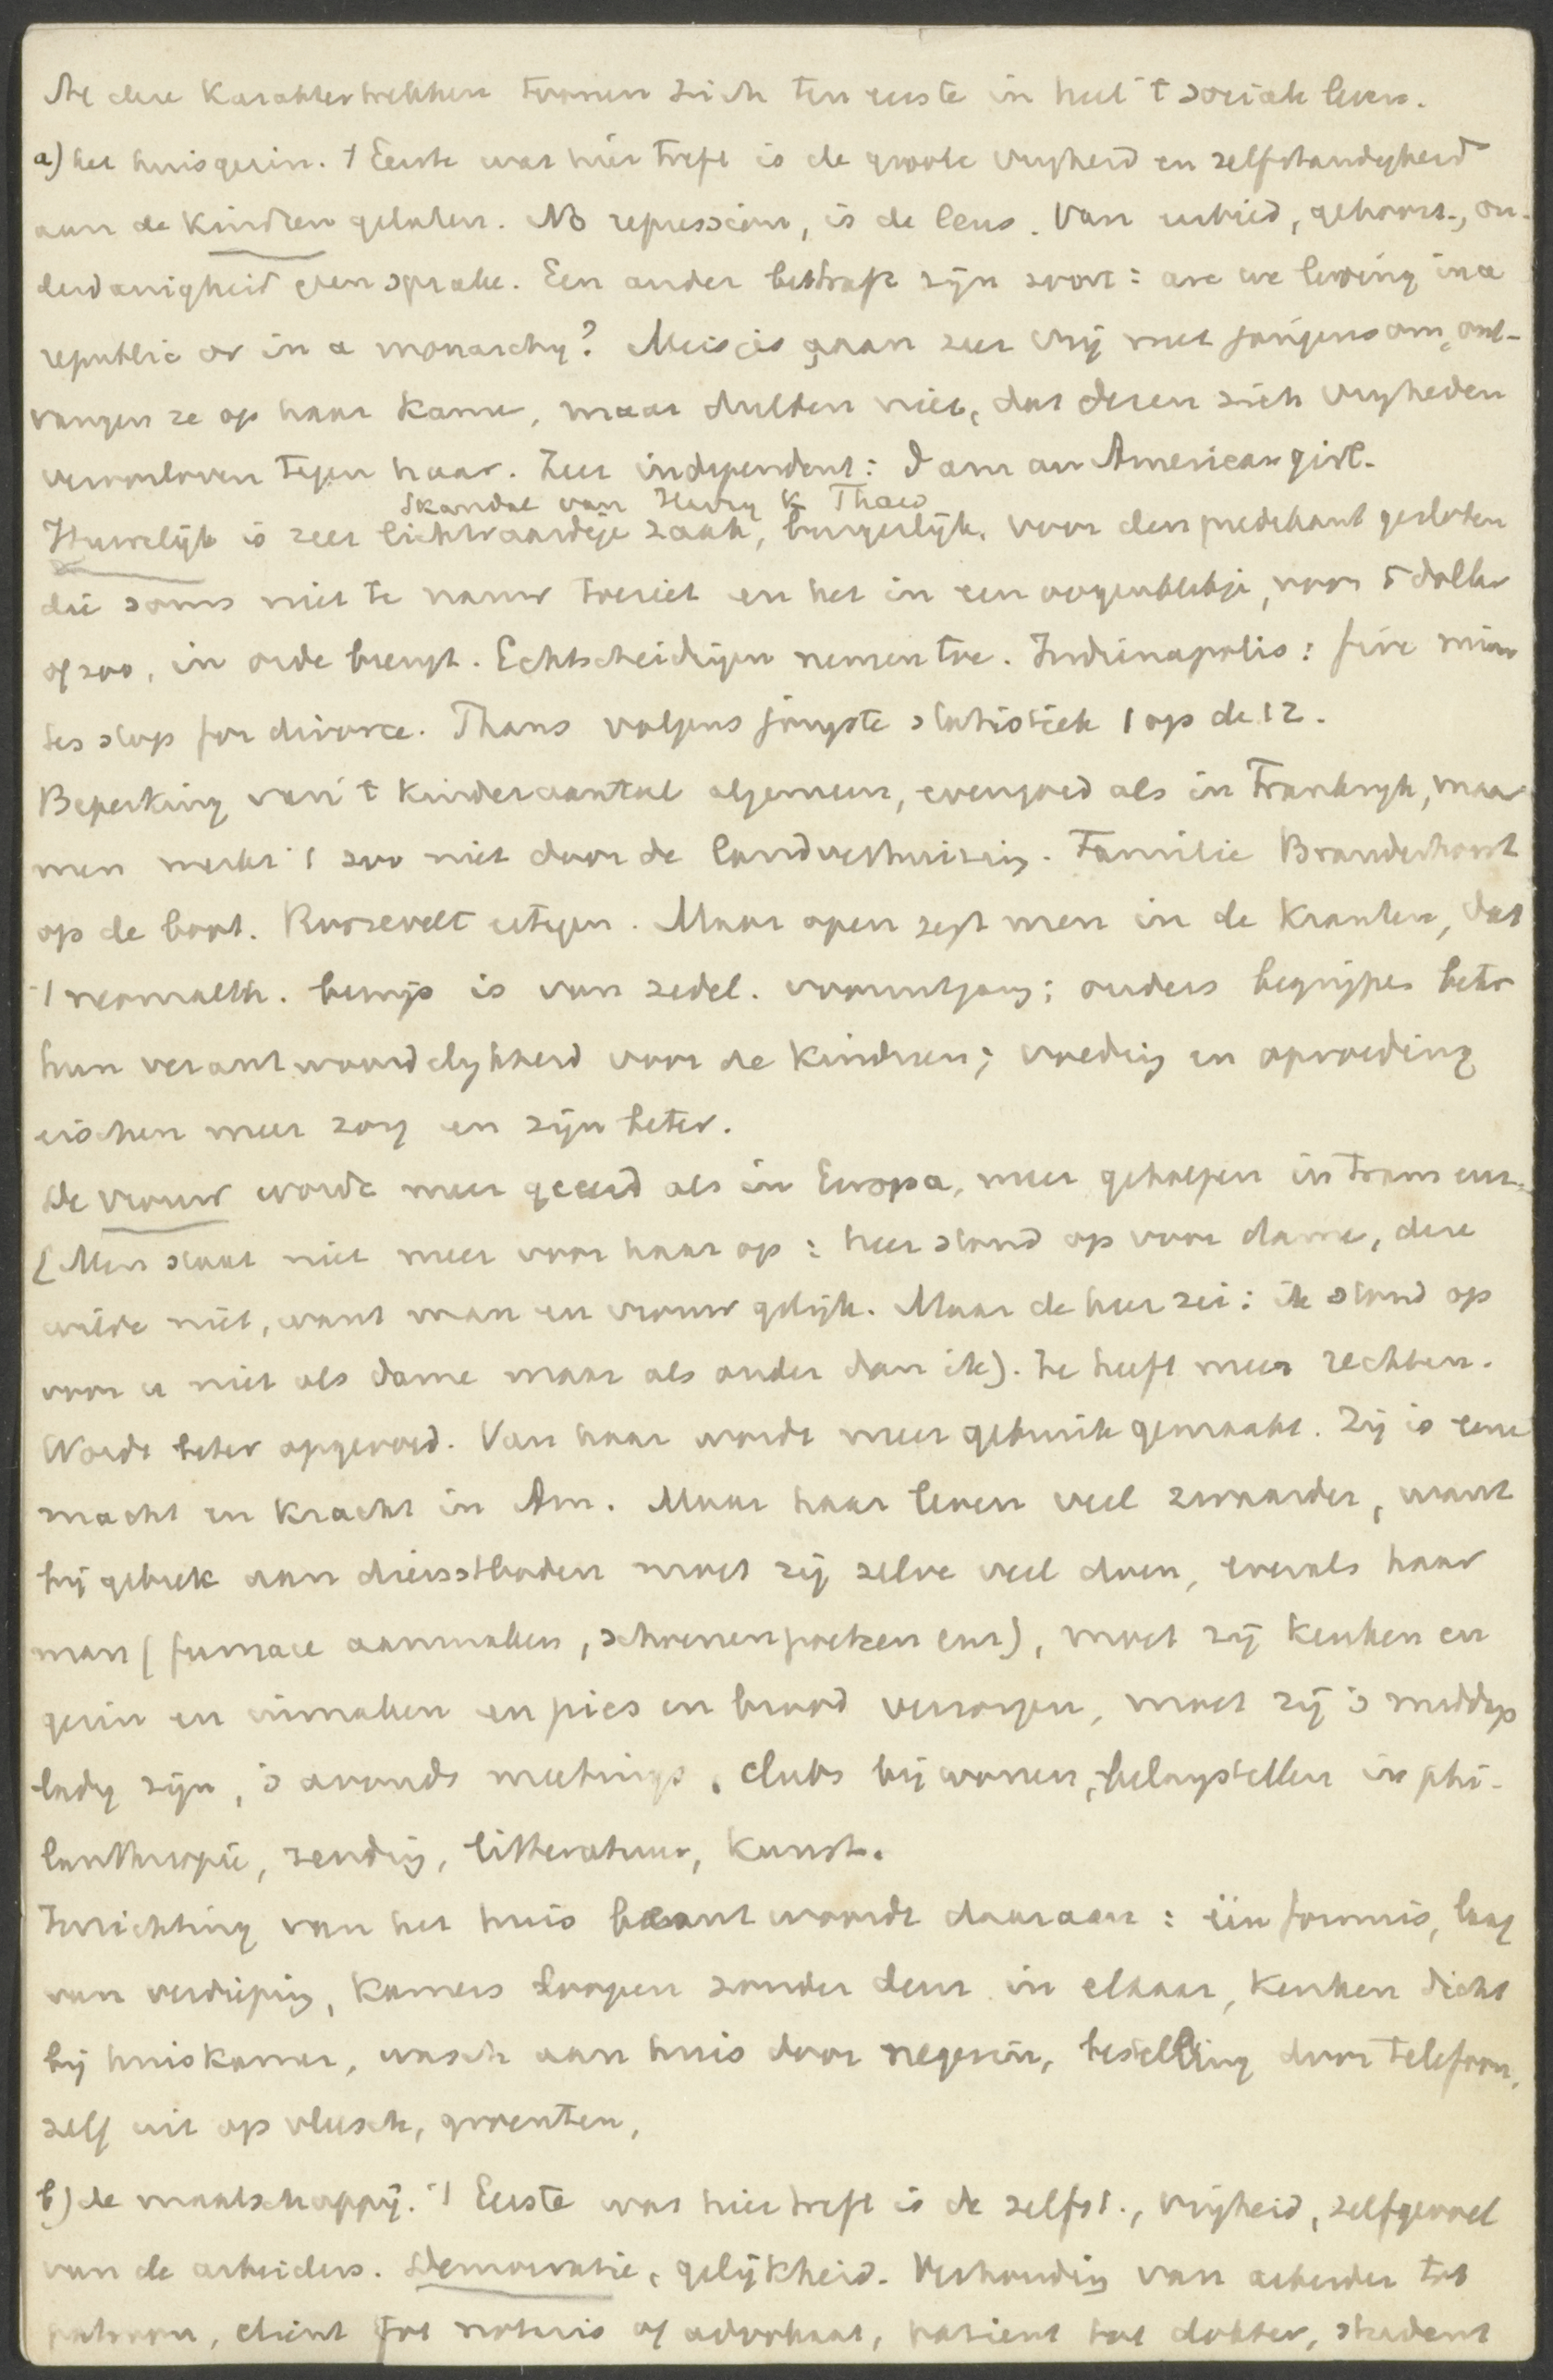 Al deze karaktertrekken toonen zich ten eerste in heel 't sociale leven.
a) het huisgezin. 't Eerste wat hier treft is de groote vrijheid en zelfstandigheid
aan de kindren gelaten. No repression, is de leus. Van eerbied, gehoorz., on-
derdanigheid geen sprake. Een ander bestraft zijn zoon: are we living in a
republic or in a monarchy? Meisjes gaan zeer vrij met jongens om, ont-
vangen ze op haar kamer, maar dulden niet, dat dezen zich vrijheden
veroorloven tegen haar. Zeer independent: I am an American girl.
Skandal van Harry K Thaw
Huwelijk is zeer lichtvaardige zaak, burgerlijk. voor den predikant gesloten
die soms niet te nauw toeziet en het in een oogenblikje, voor 5 dollar
of zoo, in orde brengt. Echtscheidingen nemen toe. Indianapolis: five minu
tes stop for divorce. Thans volgens jongste statistiek 1 op de 12.
Beperking van 't kinderaantal algemeen, evengoed als in Frankrijk, maar
men merkt 't zoo niet door de landverhuizing. Familie Branderhorst
op de boot. Roosevelt ertegen. Maar open zegt men in de kranten, dat
't neomalth. bewijs is van zedel. vooruitgang; ouders begrijpen beter
hun verantwoordelijkheid voor de kindren; voeding en opvoeding
eischen meer zorg en zijn beter.
De vrouw wordt meer geeerd als in Europa, meer geholpen in tram enz.
(Men staat niet meer voor haar op: heer stond op voor dame, deze
wilde niet, want man en vrouw gelijk. Maar de heer zei: ik stond op
voor u niet als dame maar als ouder dan ik). Ze heeft meer rechten.
Wordt beter opgevoed. Van haar wordt meer gebruik gemaakt. Zij is eene
macht en kracht in Am. Maar haar leven veel zwaarder, want
bij gebrek aan dienstboden moet zij zelve veel doen, evenals haar
man (furnace aanmaken, schoenenpoetzen enz), moet zij keuken en
gezin en inmaken en pies en brood verzorgen, moet zij 's middags
lady zijn, 's avonds meetings, clubs bijwonen, belangstellen in phi-
lanthropie, zending, litteratuur, kunst.
Inrichting van het huis beantwoordt daaraan: één fornuis, laag
van verdieping, kamers loopen zonder deur in elkaar, keuken dicht
bij huiskamer, wasch aan huis door negerin, bestelling door telefoon,
zelf uit op vleesch, groenten,
b) de maatschappij. 't Eerste wat hier treft is de zelfst., vrijheid, zelfgevoel
van de arbeiders. Democratie, gelijkheid. Verhouding van arbeider tot
patroon, client tot notaris of advokaat, patient tot dokter, student